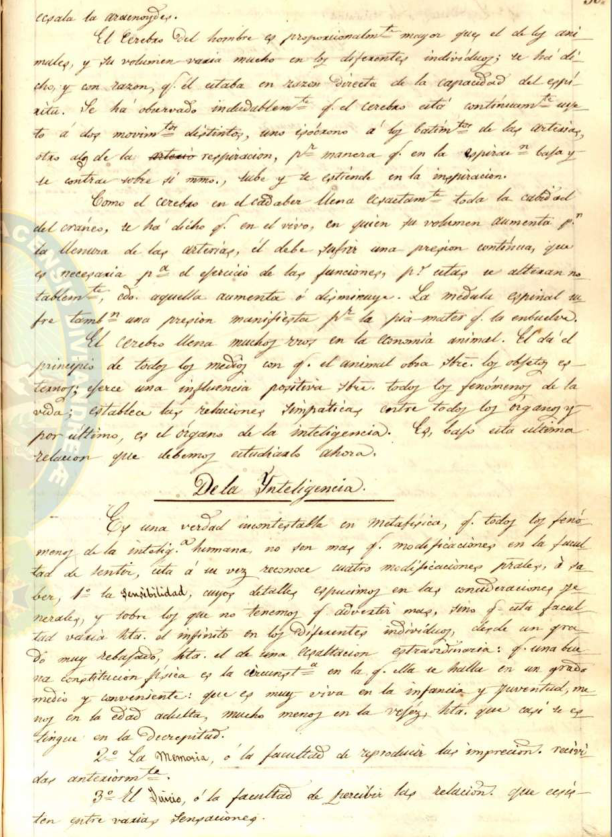 ecsala la aracnoydes.
El cerebro del hombre es proporcionalmte. mayor que el de los ani-
males, y su volumen varia mucho en los diferentes individuos; se há di-
cho, y con razon, q. él estaba en razon directa de la capacidad del espí-
ritu. Se há observado indudablemte. q. el cerebro está continuamte. suje-
to á dos movimtos. distintos, uno isócrono á los batimtos. de las arterias,
otro al de la arterio respiracion, pr. manera q. en la espiracn. baja y
se contrae sobre sí mmo., sube y se estiende en la inspiracion.
Como el cerebro en el cadaber llena ecsactamte. toda la cabidad
del cráneo, se há dicho q. en el vivo, en quien su volumen aumenta pr.
la llenura de las arterias, él debe sufrir una presion continua, que
es necesaria pa. el ejercicio de las funciones, ps. estas se alteran no-
tablemte., cdo. aquella aumenta ó disminuye. La médula espinal su-
fre tambn. una presion manifiesta pr. la pia-mater q. la enbuelve.
El cerebro llena muchos usos en la economia animal. El dá el
principio de todos los medios con q. el animal obra sbre. los objetos es-
ternos; ejerce una influencia positiva sbre. todos los fenómenos de la
vida; establece las relaciones simpáticas entre todos los órganos y
por ultimo, es el órgano de la inteligencia. Es, bajo esta ultima
relacion que debemos estudiarlo ahora.
De la Inteligencia.
Es una verdad incontestable en metafísica, q. todos los fenó-
menos de la inteliga. humana, no son mas q. modificaciones en la facul-
tad de sentir, esta á su vez reconoce cuatro modificaciones prales, á sa-
ber, 1o. la Sensibilidad, cuyos detalles espusimos en las concideraciones je-
nerales, y sobre los que no tenemos q. advertir mas, sino q. esta facul-
tad varia hta. el infinito en los diferentes individuos, desde un gra-
do muy rebajado, hta. el de una ecsaltacion estraordinaria: q. una bue-
na constitucion física es la circunsta. en la q. ella se halla en un grado
medio y conveniente: que es muy viva en la infancia y juventud, me-
nos en la edad adulta, mucho menos en la vejéz, hta. que casi se es-
tingue en la decrepitud.
2o. La Memoria, ó la facultad de reproducir las impresion. recivi-
das anteriormte.
3o. El Juicio, ó la facultad de percibir las relacion. que ecsis-
ten entre varias sensaciones.